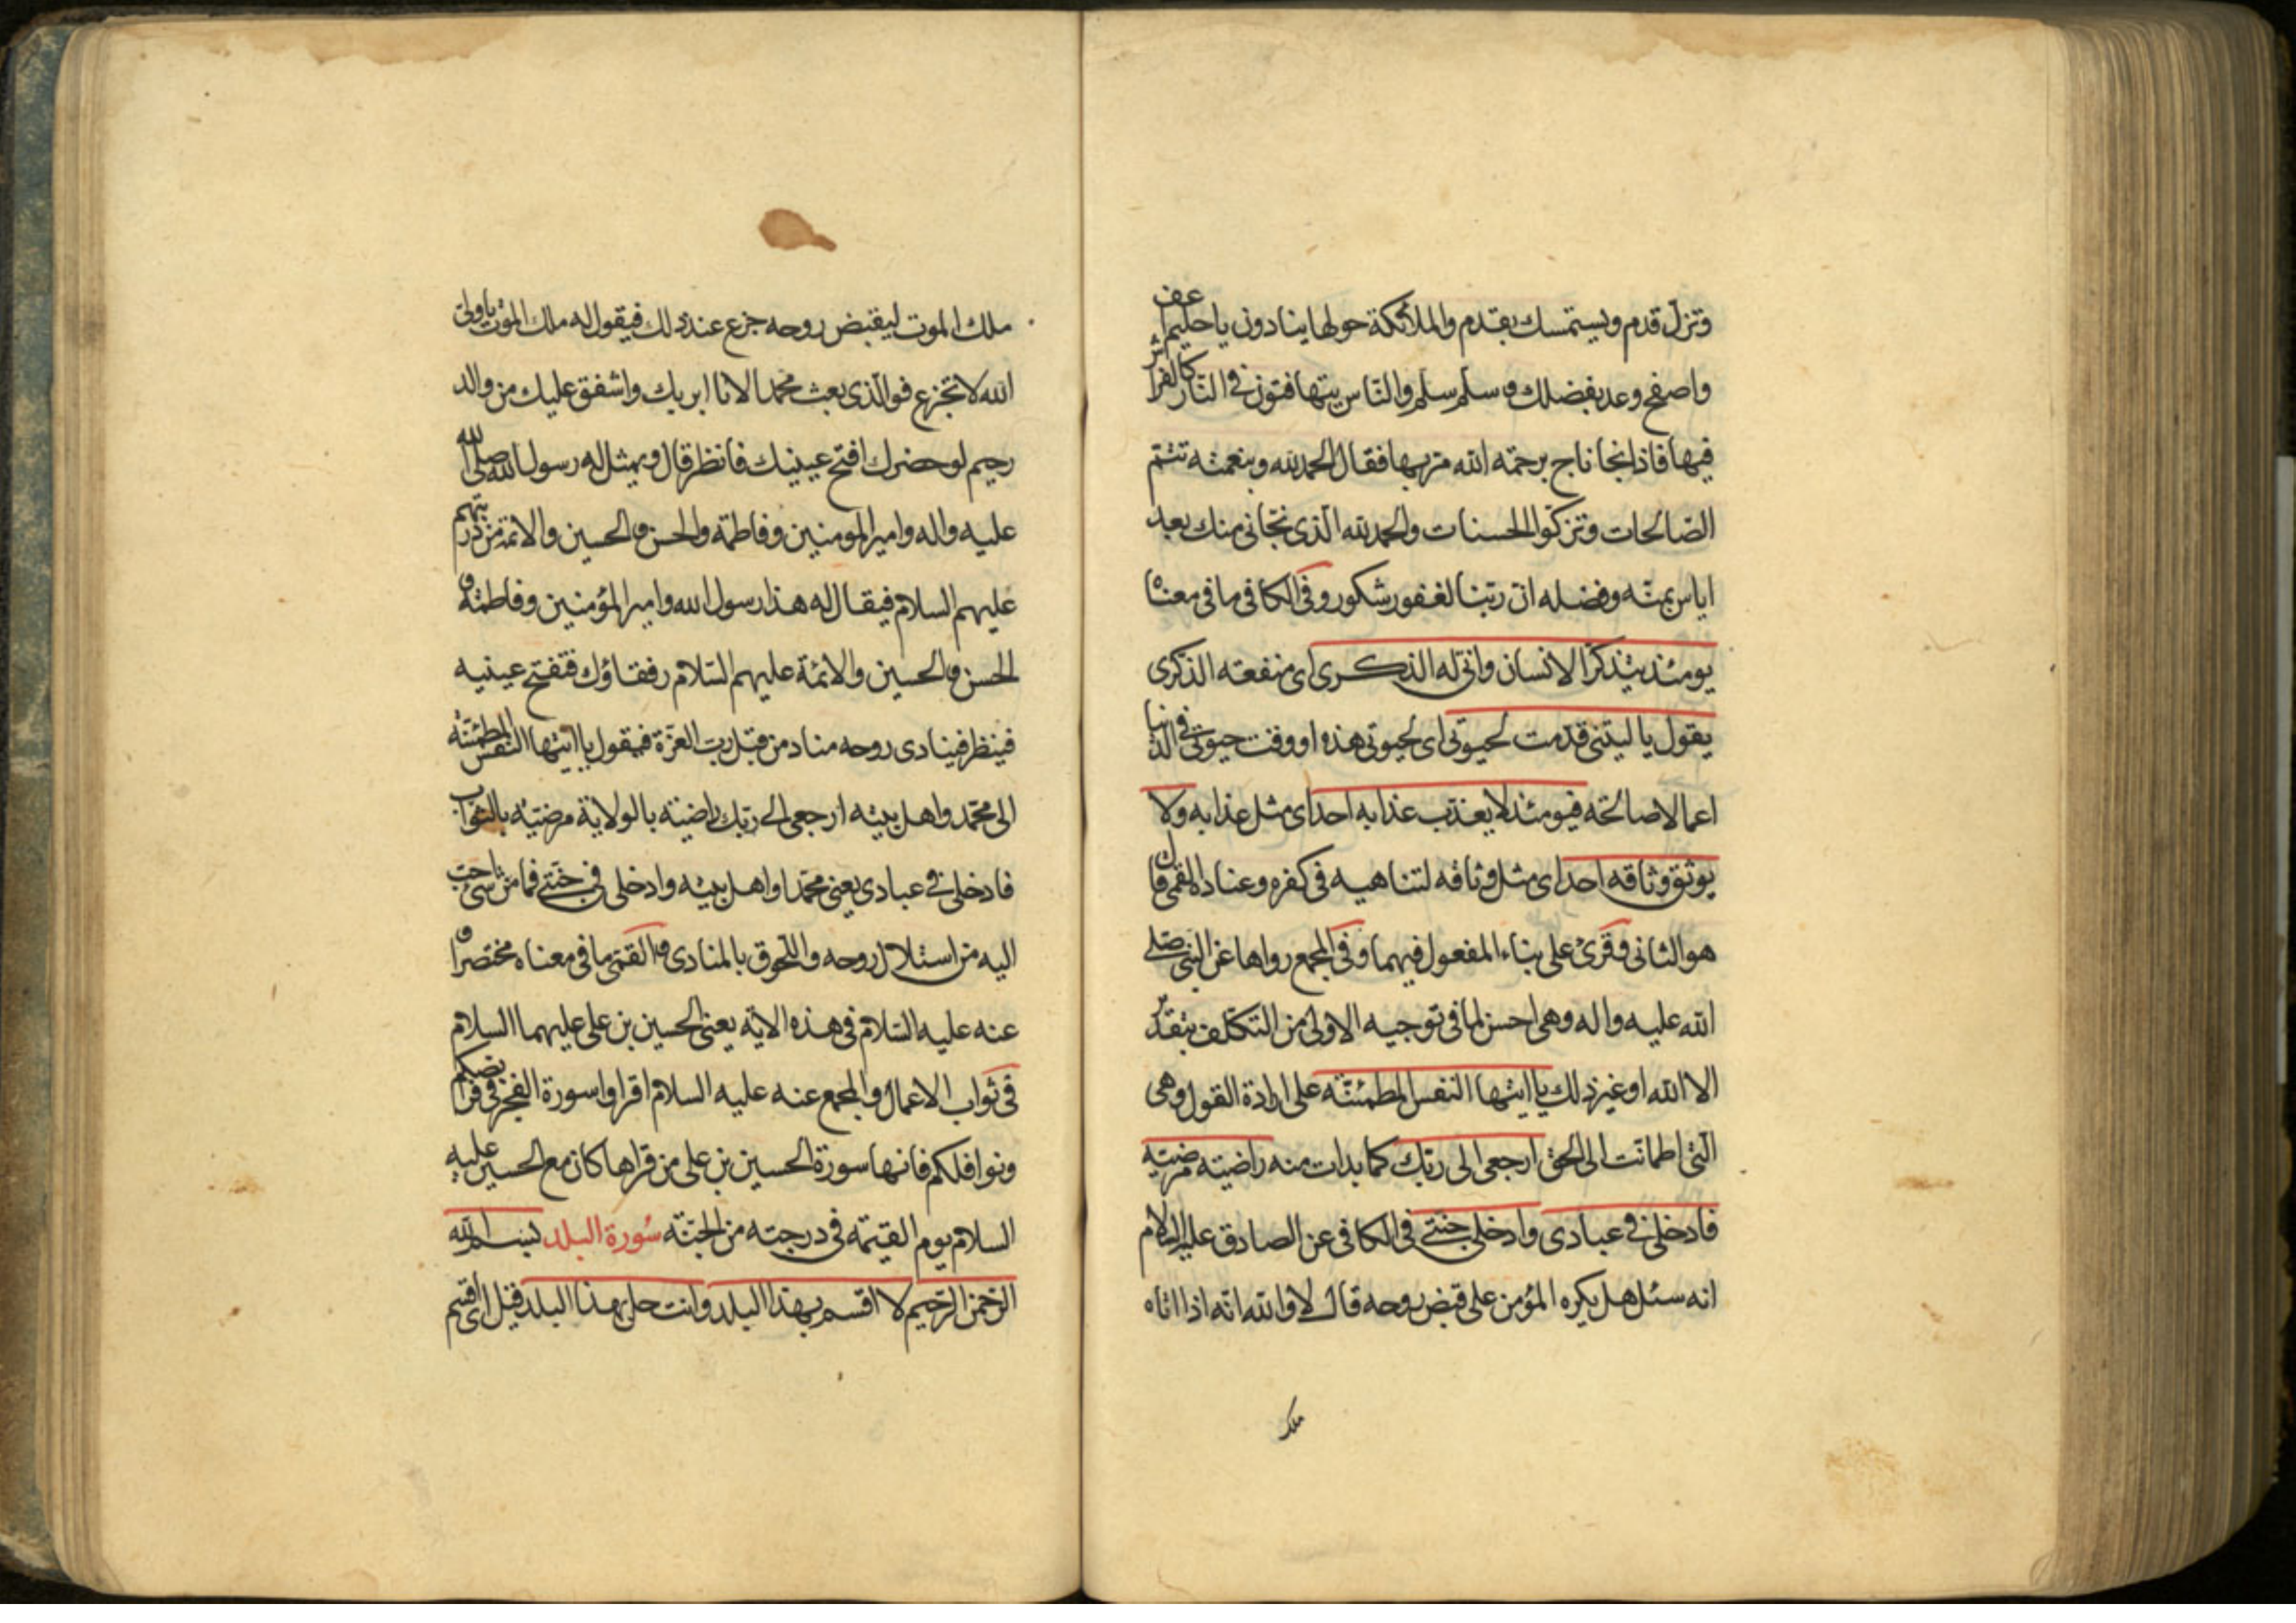 وتزل قدم ويستمسك بقدم والملائكة حولها ينادون يا حليم اعف
واصفح وعد بفضلك وسلم سلم والناس يتهافتون في النار كالفراش
فيها فاذا نجا ناج برحمة الله مر بها فقال الحمد لله وبنعمته تتم
الصالحات وتزكوا الحسنات والحمد لله الذي نجاني منك بعد
اياس بمنه وفضله ان ربنا لغفور شكور وفي الكافي ما في معناه
يومئذ يتذكر الانسان وانى له الذكرى اي منفعة الذكرى
يقول يا ليتني قدمت لحيوتي اي لحيوتي هذه او وقت حيوتي في الدنيا
اعمالا صالحة فيومئذ لا يعذب عذابه احد اي مثل عذابه ولا
يوثق وثاقه احد اي مثل وثاقه لتناهيه في كفره وعناده القمي قال
هو الثاني وقرئ على بناء المفعول فيهما وفي المجمع رواها عن النبي صلى
الله عليه واله وهي احسن لما في توجيه الاولى من التكلف بتقدير
الا الله او غير ذلك يا ايتها النفس المطمئنة على ارادة القول وهي
التي اطمانت الى الحق ارجعي الى ربك كما بدات منه راضية مرضية
فادخلي في عبادي وادخلي جنتي في الكافي عن الصادق عليه السلام
انه سئل هل يكره المؤمن على قبض روحه قال لا والله انه اذا اتاه
ملك
ملك الموت ليقبض روحه جزع عند ذلك فيقول له ملك الموت يا ولي
الله لا تجزع فو الذي بعث محمدا لانا ابر بك واشفق عليك من والد
رحيم لو حضرك افتح عينيك فانظر قال ويمثل له رسول الله صلى الله
عليه واله وامير المومنين وفاطمة والحسن والحسين والائمة من ذريتهم
عليهم السلام فيقال له هذا رسول الله وامير المؤمنين وفاطمة و
الحسن والحسين والائمة عليهم السلام رفقاؤك فتفتح عينيه
فينظر فينادي روحه مناد من قبل رب العزة فيقول يا ايتها النفس المطمئنة
الى محمد واهل بيته ارجعي الى ربك راضية بالولاية مرضية بالثواب
فادخلي في عبادي يعني محمدا واهل بيته وادخلي في جنتي فما من شئ احب
اليه من استلال روحه واللحوق بالمنادي والقمي ما في معناه مختصرا و
عنه عليه السلام في هذه الاية يعني الحسين بن علي عليهما السلام
في ثواب الاعمال والمجمع عنه عليه السلام اقراوا سورة الفجر في فرايضكم
ونوافلكم فانها سورة الحسين بن علي من قراها كان مع الحسين عليه
السلام يوم القيمة في درجته من الجنة سورة البلد بسم الله
الرحمن الرحيم لا اقسم بهذا البلد وانت حل بهذا البلد قيل اي اقسم